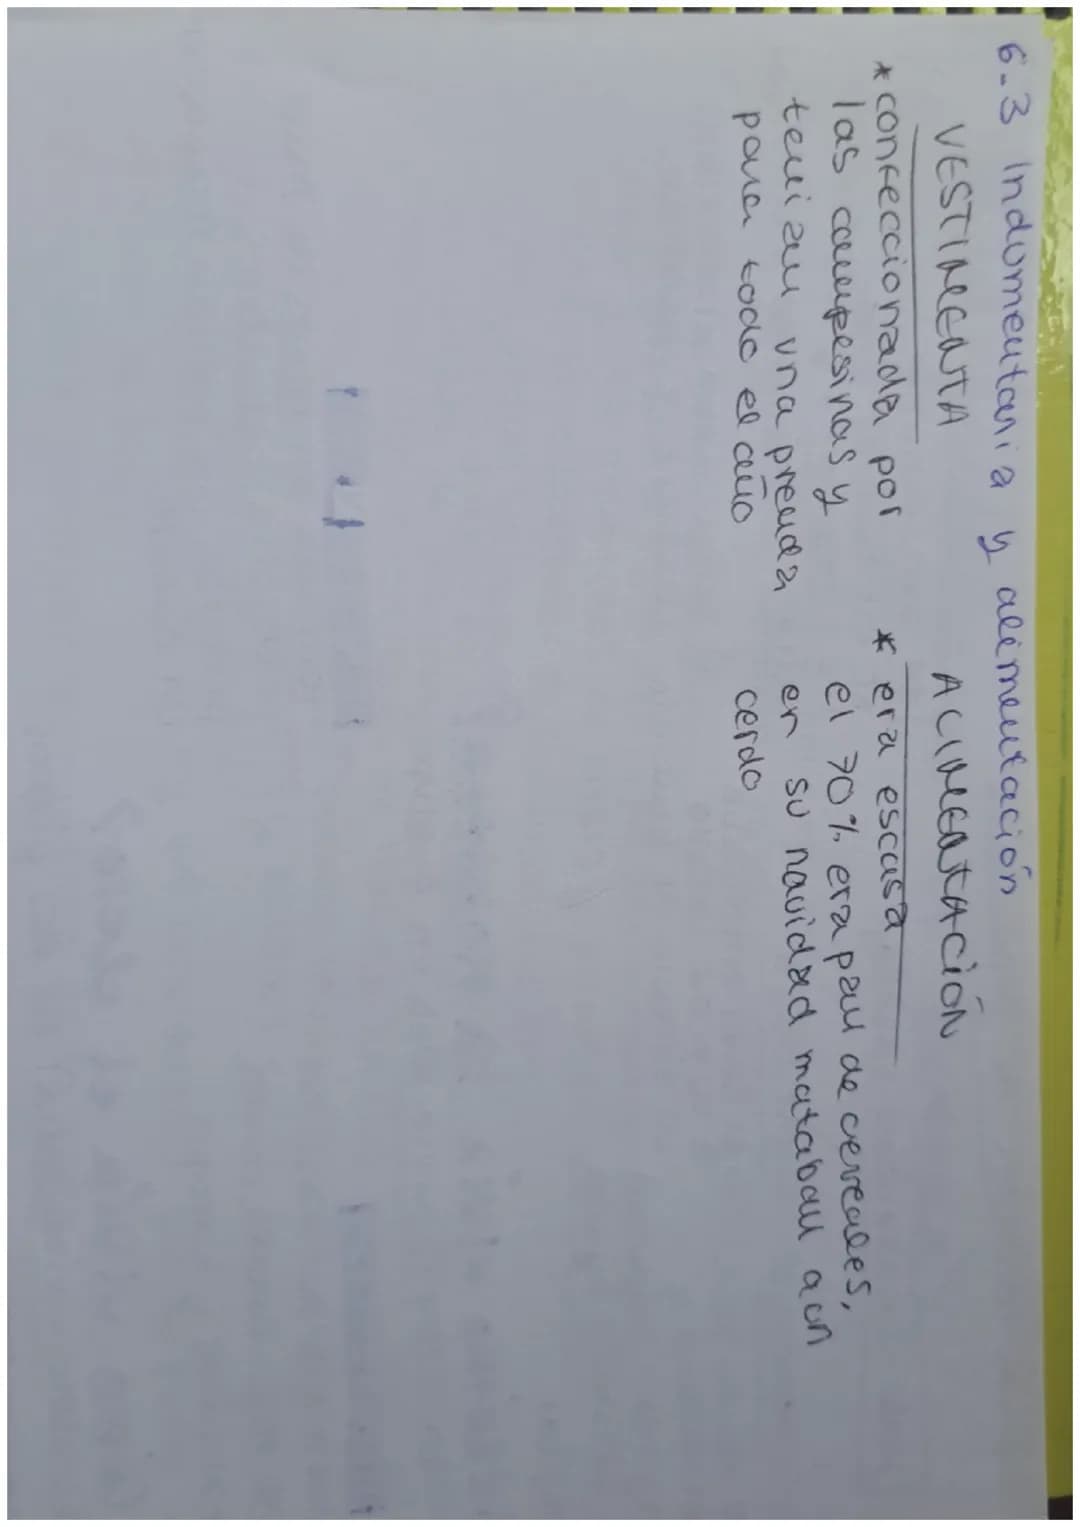 6-3 Indumentaria y alimentación
VESTIMENTA
* confeccionada por
las campesinas y
tenian una prenda
para todo el año
ALIMENTACIÓN
* era escasa
el 70% era pan de cereales,
en su navidad mataban a un
cerdo